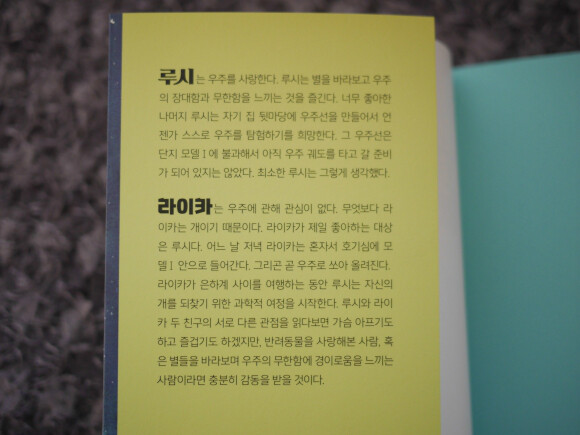 루시는 우주를 사랑한다. 루시는 별을 바라보고 우주
의 장대함과 무한함을 느끼는 것을 즐긴다. 너무 좋아한
나머지 루시는 자기 집 뒷마당에 우주선을 만들어서 언
젠가 스스로 우주를 탐험하기를 희망한다. 그 우주선은
단지 모델 I 에 불과해서 아직 우주 궤도를 타고 갈 준비
가 되어 있지는 않았다. 최소한 루시는 그렇게 생각했다.
라이카는 우주에 관해 관심이 없다. 무엇보다 라
이카는 개이기 때문이다. 라이카가 제일 좋아하는 대상
은 루시다. 어느 날 저녁 라이카는 혼자서 호기심에 모
델 I 안으로 들어간다. 그리곤 곧 우주로 쏘아 올려진다.
라이카가 은하계 사이를 여행하는 동안 루시는 자신의
개를 되찾기 위한 과학적 여정을 시작한다. 루시와 라이
카 두 친구의 서로 다른 관점을 읽다보면 가슴 아프기도
하고 즐겁기도 하겠지만, 반려동물을 사랑해본 사람, 혹
은 별들을 바라보며 우주의 무한함에 경이로움을 느끼는
사람이라면 충분히 감동을 받을 것이다.